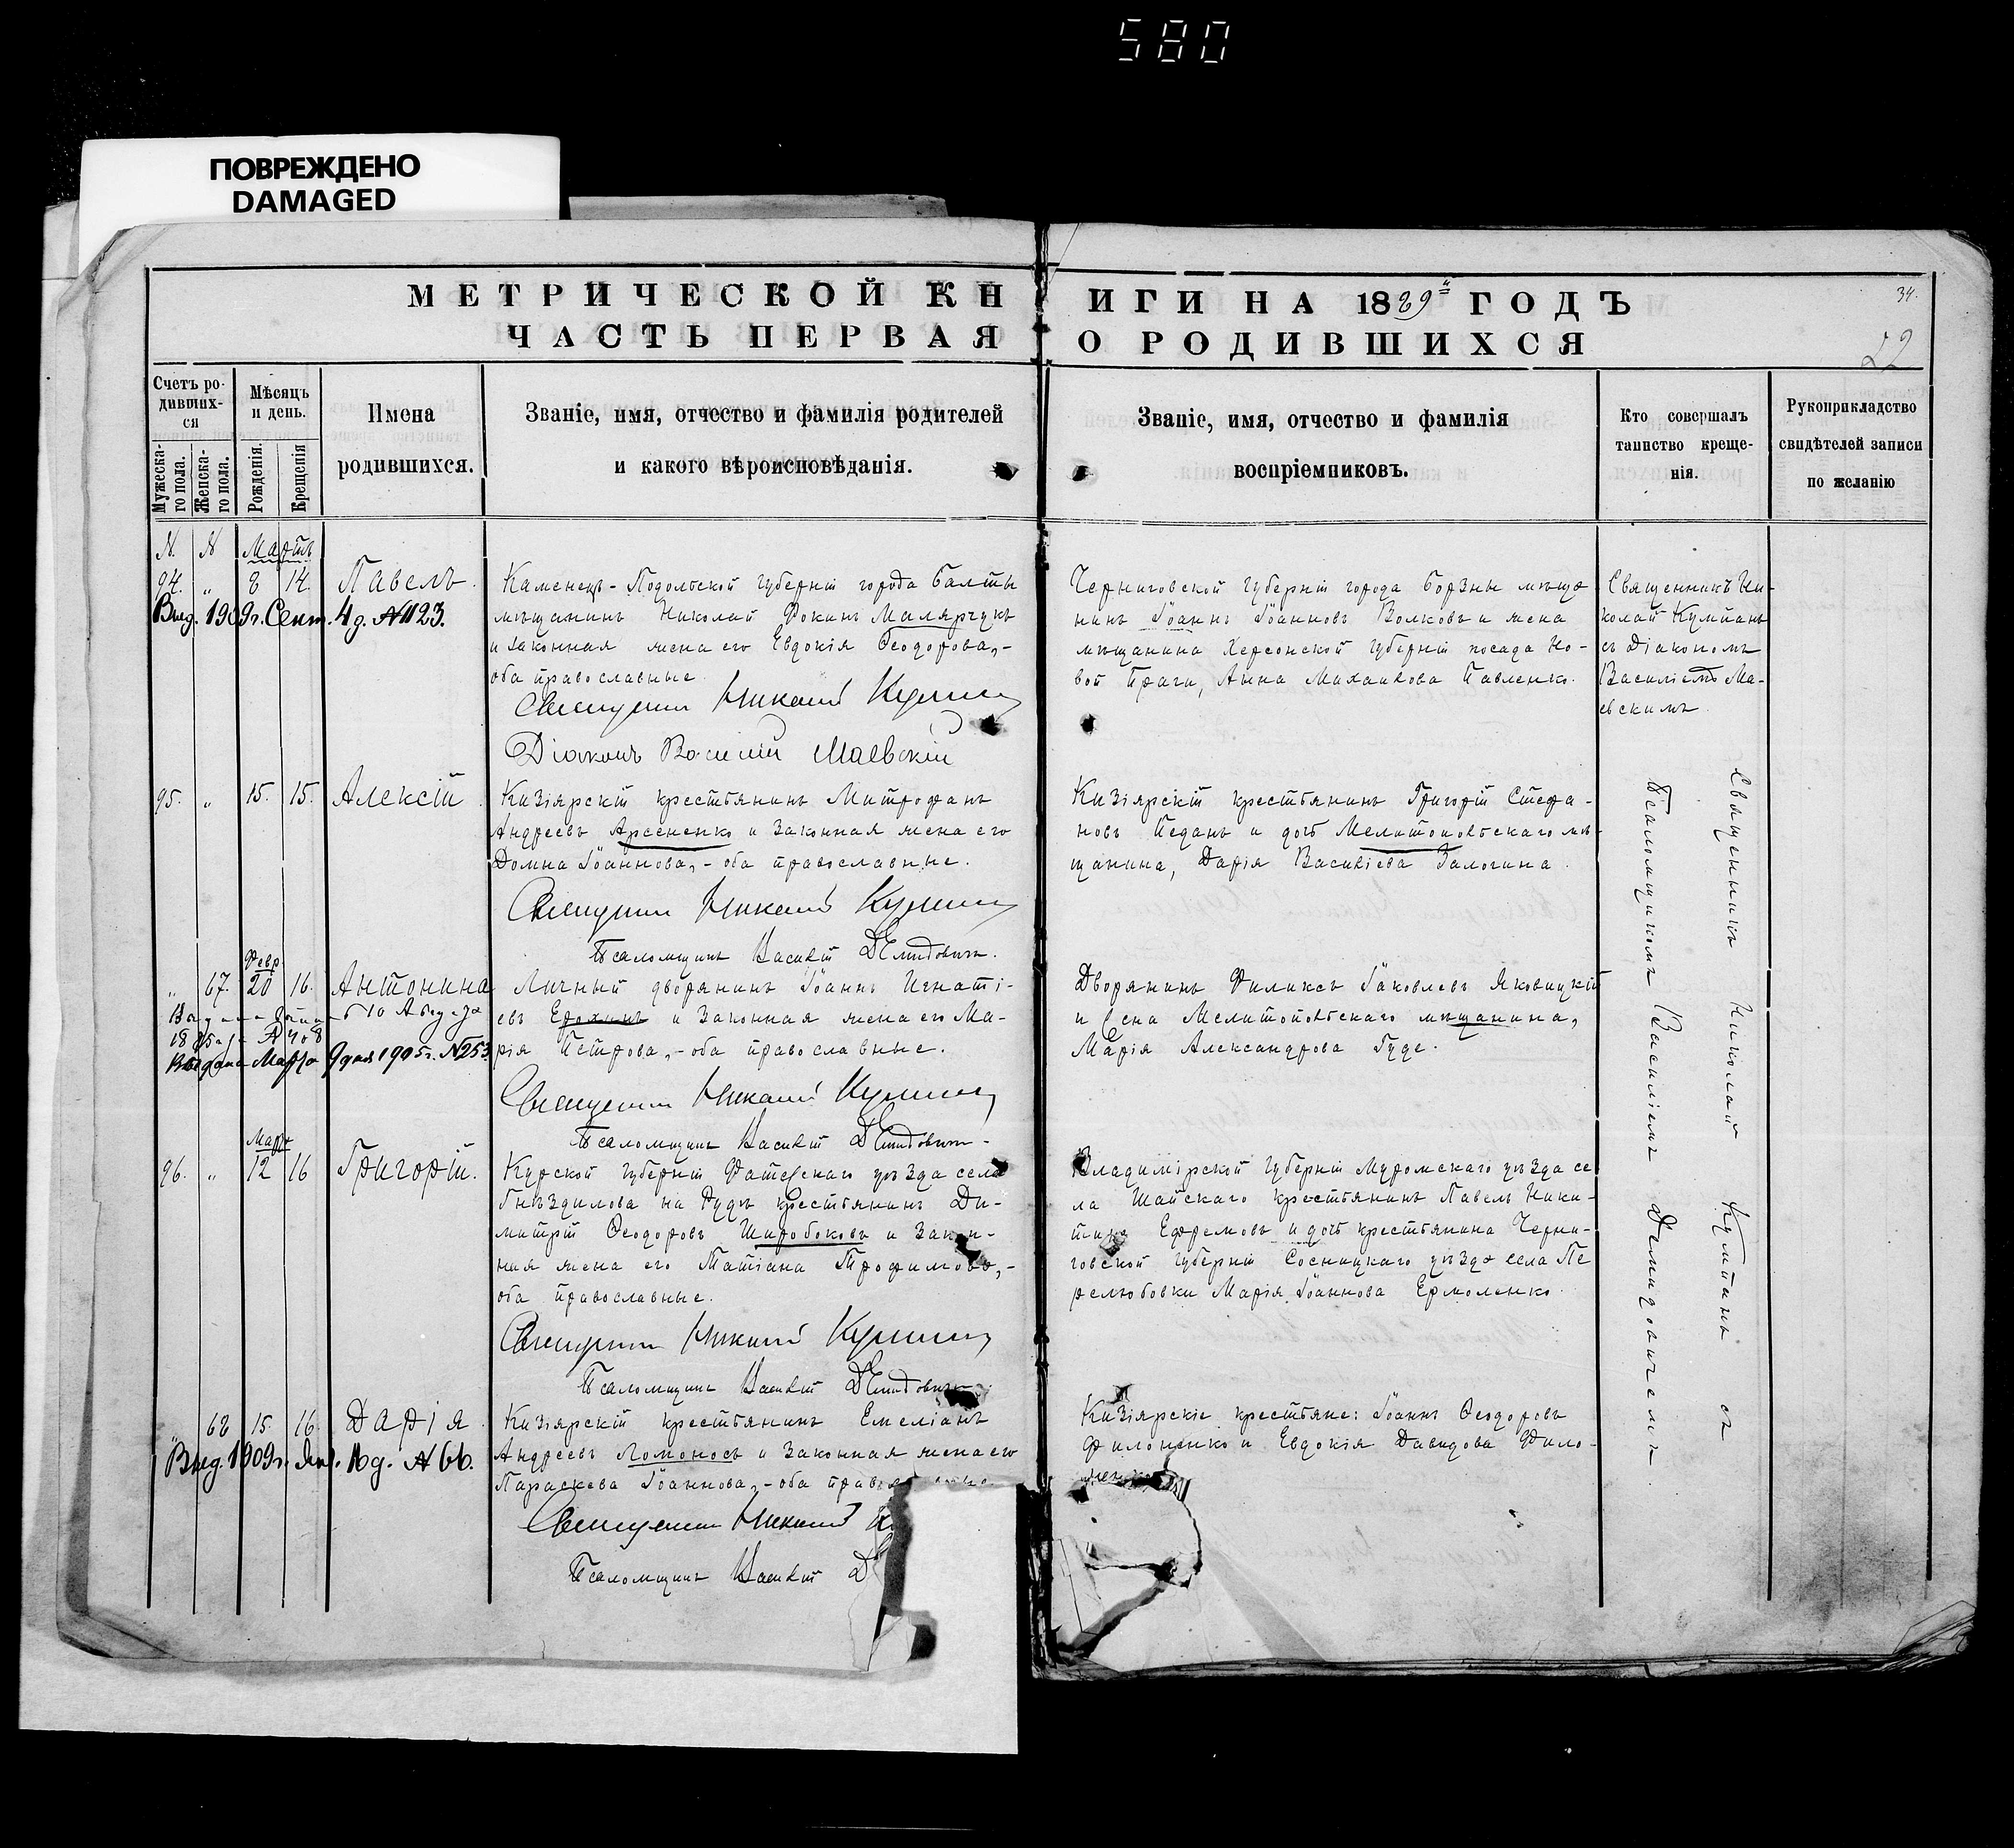 580
ПОВРЕЖДЕНО
DAMAGED
МЕТРИЧЕСКОЙ КНИГИ НА 1889й ГОДЪ
ЧАСТЬ ПЕРВАЯ О РОДИВШИХСЯ
34.
Счетъ ро-
дивших-
ся
Мужеска-
го пола.
Женска-
го пола.
Мѣсяцъ
и день.
Рожденія.
Крещенія
Имена
родившихся.
Званіе, имя, отчество и фамилія родителей
и какого вѣроисповѣданія.
Званіе, имя, отчество и фамилія
воспріемниковъ.
Кто совершалъ
таинство креще-
нія.
Рукоприкладство
свидѣтелей записи
по желанію
N. N Мартъ
94. " 8 14. Павелъ.
Выд. 1909г. Сент. 4д. №1123.
Каменецъ-Подольской губерніи города Балты
мѣщанинъ Николай Фокинъ Малярчукъ
и законная жена его Евдокія Ѳеодорова,-
оба православные.
Священникъ Николай
Діаконъ Василій Маевскій
Черниговской губерніи города Борзны мѣща
нинъ Іоаннъ Іоанновъ Волковъ и жена
мѣщанина Херсонской губерніи посада Но-
вой Праги, Анна Михаилова Павленко.
Священникъ Ни-
колай
съ Діакономъ
Василіемъ Ма-
евскимъ
95. " 15. 15. Алексій.
Кизіярскій крестьянинъ Митрофанъ
Андреевъ Арсененко и законная жена его
Домна Іоаннова,- оба православные.
Священникъ Николай
Псаломщикъ Василій Демидовичъ.
Кизіярскій крестьянинъ Григорій Стефа-
новъ Педанъ и дочь Мелитопольскаго мѣ-
щанина, Дарія Василіева Залогина.
Февр.
" 67. 20 16. Антонина
Выдана Марта 9 дня 1905г. №253
Личный дворянинъ Іоаннъ Игнаті-
евъ Ерохинъ и законная жена его Ма-
рія Петрова,- оба православные.
Священникъ Николай
Псаломщикъ Василій Демидовичъ.
Дворянинъ Филиксъ Іаковлевъ Яковицкій
и жена Мелитопольскаго мѣщанина,
Марія Александрова Гуде.
Март
96. " 12 16 Григорій.
Курской губерніи Фатежскаго уѣзда села
Гнѣздилова на Рудѣ крестьянинъ Ди-
митрій Ѳеодоровъ Широбоковъ и закон-
ная жена его Татіана Трофимова,-
оба православные.
Священникъ Николай
Псаломщикъ Василій Демидовичъ
Владимірской губерніи Муромскаго уѣзда се
ла крестьянинъ Павелъ Ники-
тинъ Ефремовъ и дочь крестьянина Черни-
говской губерніи Сосницкаго уѣзда села Пе
релюбовки Марія Іоаннова Ермоленко.
" 68 15. 16. Дарія.
Выд. 1909г. Янв. 16д. №66.
Кизіярскій крестьянинъ Емеліанъ
Андреевъ Ломоносъ и законная жена его
Параскева Іоаннова,- оба
Священникъ Николай
Псаломщикъ Василій
Кизіярскіе крестьяне: Іоаннъ Ѳеодоровъ
Филоненко и Евдокія Давидова Фило-
ненко
Священникъ Николай съ
Псаломщикомъ Василіемъ Демидовичемъ.